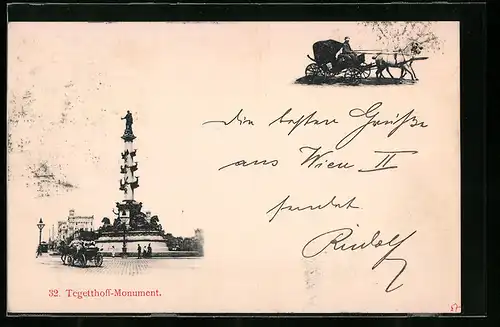 Die besten Grüße
aus Wien II
sendet
Rudolf
32. Tegetthoff-Monument.